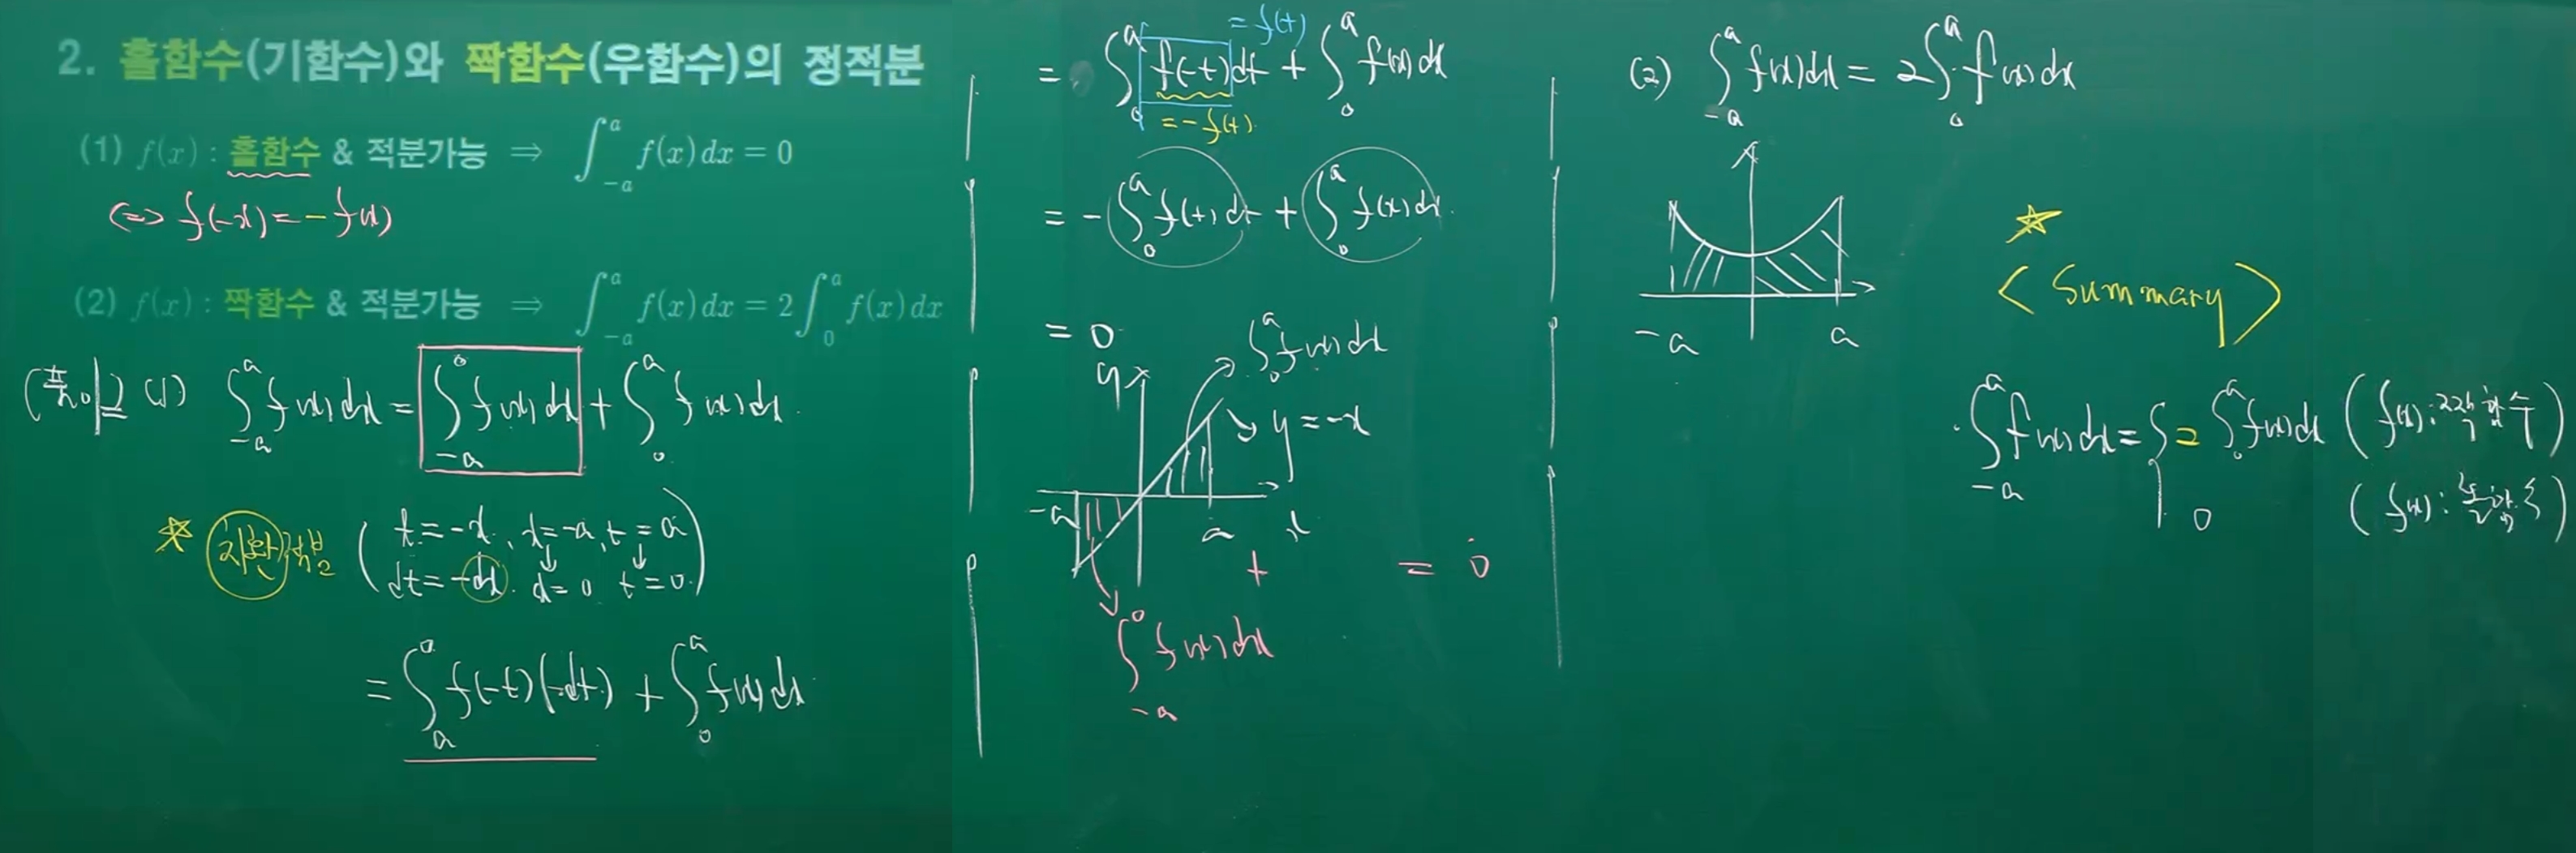 2. 홀함수(기함수)와 짝함수(우함수)의 정적분
(1) f(x) : 홀함수 & 적분가능 ⇒ ∫_{-a}^{a} f(x) dx = 0
⇔ f(-x) = -f(x)
(2) f(x) : 짝함수 & 적분가능 ⇒ ∫_{-a}^{a} f(x) dx = 2∫_{0}^{a} f(x) dx
(풀이) (1) ∫_{-a}^{a} f(x)dx = ∫_{-a}^{0} f(x)dx + ∫_{0}^{a} f(x)dx
★ 치환적분 ( t = -x, x = -a, t = a
dt = -dx. x = 0 t = 0 )
= ∫_{a}^{0} f(-t)(-dt) + ∫_{0}^{a} f(x)dx
= f(t)
= ∫_{0}^{a} f(-t)dt + ∫_{0}^{a} f(x)dx
= -f(t).
= -∫_{0}^{a} f(t)dt + ∫_{0}^{a} f(x)dx
= 0
∫_{0}^{a} f(x)dx
y
y = x
-a a x
+ = 0
∫_{-a}^{0} f(x)dx
(2) ∫_{-a}^{a} f(x)dx = 2∫_{0}^{a} f(x)dx
-a a
★
< Summary >
∫_{-a}^{a} f(x)dx = { 2∫_{0}^{a} f(x)dx (f(x) : 짝함수)
0 (f(x) : 홀함수)